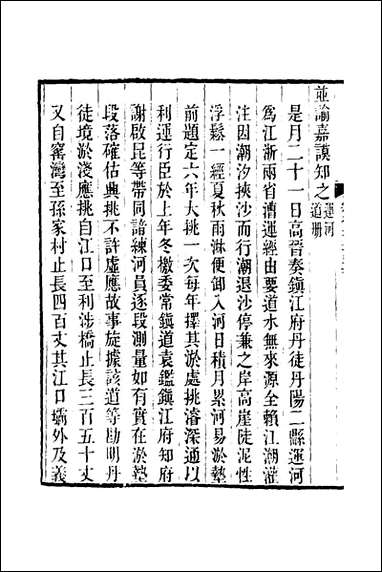 並諭嘉謨知之運河
道册
是月二十一日高晉奏鎭江府丹徒丹陽二縣運河
爲江浙兩省漕運經由要道水無來源全賴江潮灌
注因潮汐挾沙而行潮退沙停兼之岸高崖陡泥性
浮鬆一經夏秋雨淋便卸入河日積月累河易淤墊
前題定六年大挑一次每年擇其淤處挑濬深通以
利運行臣於上年冬檄委常鎭道袁鑑鎭江府知府
謝啟昆等帶同諳練河員逐段測量如有實在淤墊
段落確估典挑不許虛應故事旋據該道等勘明丹
徒境淤淺應挑自江口至利涉橋止長三百五十丈
又自窰灣至孫家村止長四百丈其江口壩外及義